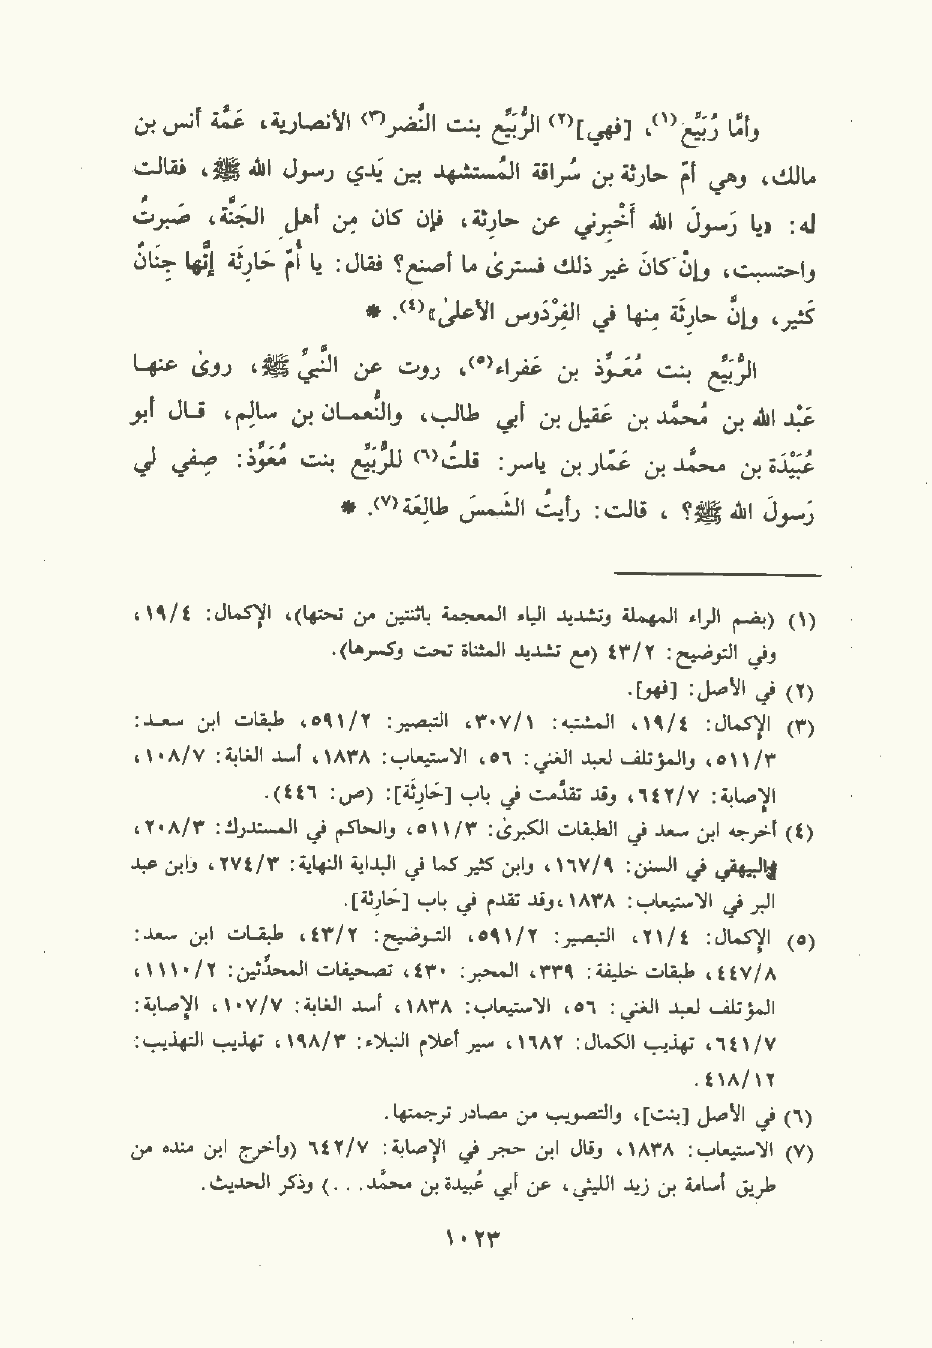 وأمَّا رُبَيِّع(١)، [فهي](٢) الرُّبَيِّع بنت النَّضر(٣) الأنصارية، عَمَّة أنس بن
مالك، وهي أمّ حارثة بن سُراقة المُستشهد بين يَدي رسول الله ﷺ، فقالت
له: «يا رَسولَ الله أَخبِرني عن حارِثة، فإن كان مِن أهلِ الجَنَّة، صَبرتُ
واحتسبت، وإنْ كانَ غير ذلك فسترىٰ ما أصنع؟ فقال: يا أُمَّ حَارِثَة إنَّها جِنانٌ
كَثير، وإنَّ حارِثَة مِنها في الفِرْدَوس الأعلىٰ»(٤). *
الرُّبَيِّع بنت مُعَـوِّذ بن عَفراء(٥)، روت عن النَّبيِّ ﷺ، روىٰ عنهـا
عَبْد الله بن مُحمَّـد بن عَقيل بن أبي طالب، والنُّعمـان بن سالِم، قـال أبو
عُبَيْدَة بن محمَّـد بن عَمّار بن ياسر: قلتُ(٦) للرُّبَيِّع بنت مُعَوِّذ: صِفي لي
رَسولَ الله ﷺ؟ ، قالت: رأيتُ الشَّمسَ طالِعَة(٧). *
(١) (بضم الراء المهملة وتشديد الياء المعجمة باثنتين من تحتها)، الإكمال: ١٩/٤،
وفي التوضيح: ٤٣/٢ (مع تشديد المثناة تحت وكسرها).
(٢) في الأصل: [فهو].
(٣) الإكمال: ١٩/٤، المشتبه: ٣٠٧/١، التبصير: ٥٩١/٢، طبقات ابن سعـد:
٥١١/٣، والمؤتلف لعبد الغني: ٥٦، الاستيعاب: ١٨٣٨، أسد الغابة: ١٠٨/٧،
الإصابة: ٦٤٢/٧، وقد تقدَّمت في باب [حَارِثَة]: (ص: ٤٤٦).
(٤) أخرجه ابن سعد في الطبقات الكبرىٰ: ٥١١/٣، والحاكم في المستدرك: ٢٠٨/٣،
والبيهقي في السنن: ١٦٧/٩، وابن كثير كما في البداية النهاية: ٢٧٤/٣، وابن عبد
البر في الاستيعاب: ١٨٣٨،وقد تقدم في باب [حَارِثة].
(٥) الإكمال: ٢١/٤، التبصير: ٥٩١/٢، التـوضيح: ٤٣/٢، طبقـات ابن سعد:
٤٤٧/٨، طبقات خليفة: ٣٣٩، المحبر: ٤٣٠، تصحيفات المحدِّثين: ١١١٠/٢،
المؤتلف لعبد الغني: ٥٦، الاستيعاب: ١٨٣٨، أسد الغابة: ١٠٧/٧، الإصابة:
٦٤١/٧، تهذيب الكمال: ١٦٨٢، سير أعلام النبلاء: ١٩٨/٣، تهذيب التهذيب:
٤١٨/١٢.
(٦) في الأصل [بنت]، والتصويب من مصادر ترجمتها.
(٧) الاستيعاب: ١٨٣٨، وقال ابن حجر في الإصابة: ٦٤٢/٧ (وأخرج ابن منده من
طريق أسامة بن زيد الليثي، عن أبي عُبيدة بن محمَّد. . .) وذكر الحديث.
١٠٢٣